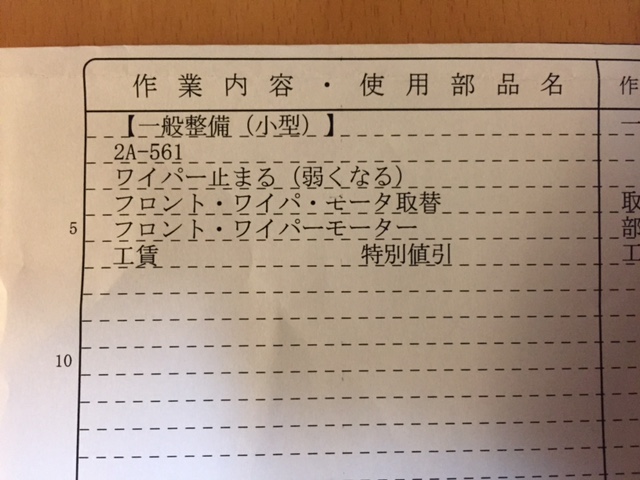 作業内容・使用部品名 作
【一般整備（小型）】 一
2A-561
ワイパー止まる（弱くなる）
フロント・ワイパ・モータ取替 取
5 フロント・ワイパーモーター 部
工賃 特別値引 工
10